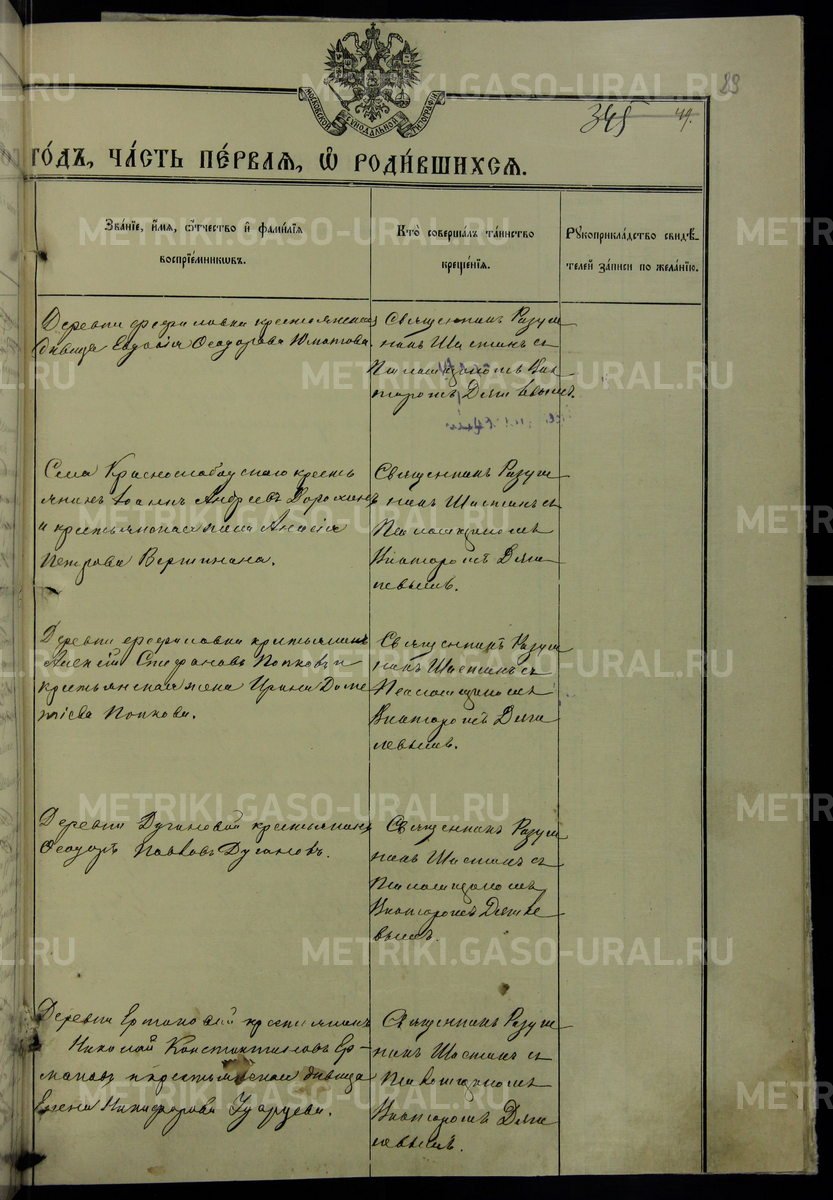 89
345 49.
МОСКОВСКОЙ СѴНОДАЛЬНОЙ ТИПОГРАФІИ
го́дъ, ча́сть пе́рвая, ѡ҆ роди́вшихся.
Зва́нїе, и҆́мя, ѻ҆́тчество и҆ фами́лїя
воспрїе́мникѡвъ.
Кто̀ соверша́лъ та́инство
креще́нїя.
Рꙋкоприкла́дство свидѣ́-
телей за́писи по жела́нїю.
Деревни Ерфиловки крестьянская
дѣвица Евдокія Ѳеодорова Юматова.
Священникъ Разум
никъ Шастинъ съ
Псаломщикомъ Вик
торомъ
Села Краснослободскаго кресть
янинъ Іоаннъ Андреевъ Дорохинъ
и крестьянская жена Анисія
Петрова Вершинина.
Священникъ Разум
никъ Шастинъ съ
Псаломщикомъ
Викторомъ Дяги
левымъ.
Деревни Ерфиловки крестьянинъ
Алексѣй Стефановъ Попковъ и
крестьянская жена Ирина Доме
тіева Попкова.
Священникъ Разум
никъ Шастинъ съ
Псаломщикомъ
Викторомъ Дяги
левымъ.
Деревни Дугановой крестьянинъ
Ѳеодоръ Павловъ Дугановъ.
Священникъ Разум
никъ Шастинъ съ
Псаломщикомъ
Викторомъ Дягиле
вымъ.
Деревни Ермаковой крестьянинъ
Николай Константиновъ Ер-
маковъ и крестьянская дѣвица
Елена Никифорова
Священникъ Разум
никъ Шастинъ съ
Псаломщикомъ
Викторомъ Дяги
левымъ.
METRIKI.GASO-URAL.RU